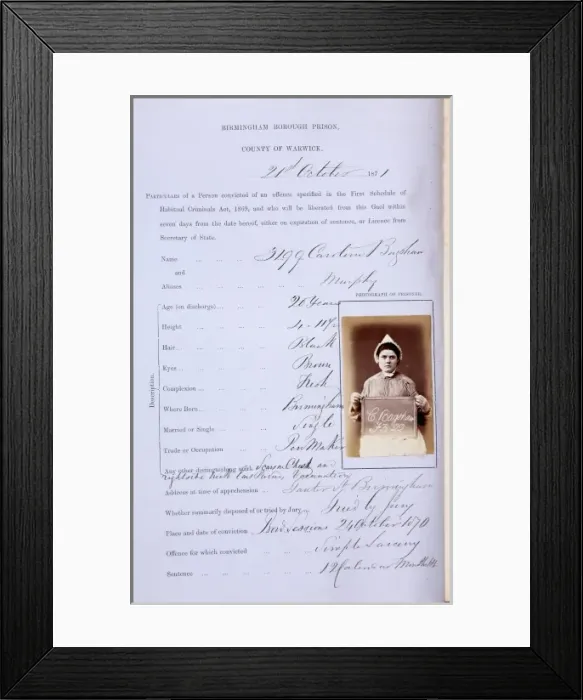 BIRMINGHAM BOROUGH PRISON,
COUNTY OF WARWICK.
21st October 1871
PARTICULARS of a Person convicted of an offence specified in the First Schedule of
Habitual Criminals Act, 1869, and who will be liberated from this Gaol within
seven days from the date hereof, either on expiration of sentence, or Licence from
Secretary of State.
Name 3199 Caroline
and
Aliases Murphy
PHOTOGRAPH OF PRISONER.
Age (on discharge) 26 Years
Height 4-11
Hair Black
Eyes Brown
Complexion Fresh
Where Born Birmingham
Married or Single Single
Trade or Occupation Pen Maker
Any other distinguishing mark Scar on Cheek and
right side
Address at time of apprehension St Birmingham
Whether summarily disposed of or tried by Jury Tried by Jury
Place and date of conviction Boro Sessions 24 October 1870
Offence for which convicted Simple Larceny
Sentence 12 Calendar Months
Description.
C